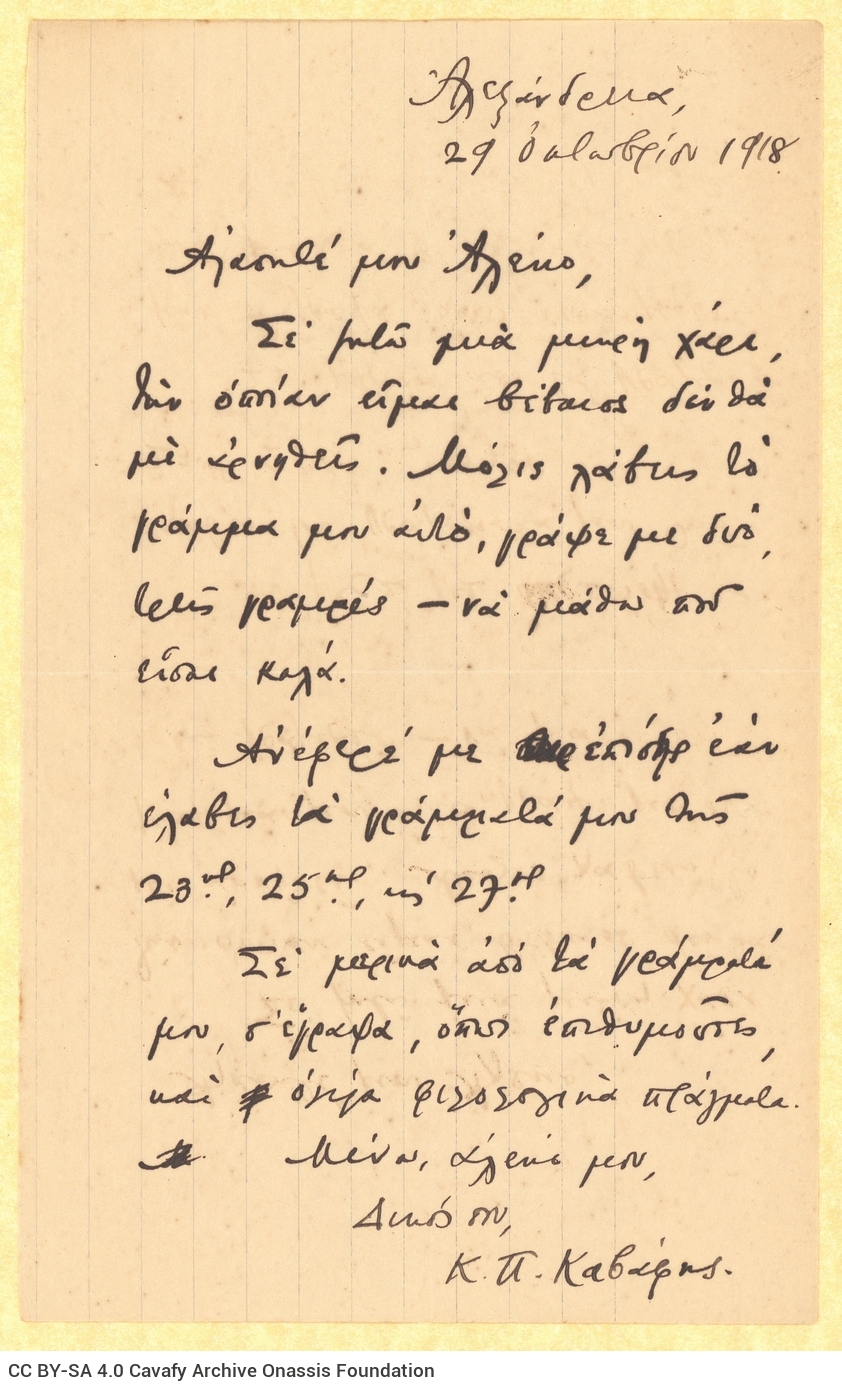 Ἀλεξάνδρεια,
29 Ὀκτωβρίου 1918
Ἀγαπητέ μου Ἀλέκο,
Σὲ ζητῶ μιὰ μικρὴ χάρι,
τὴν ὁποίαν εἶμαι βέβαιος δὲν θὰ
μὲ ἀρνηθεῖς. Μόλις λάβεις τὸ
γράμμα μου αὐτό, γράψε με δυό,
τρεῖς γραμμές — νὰ μάθω ποῦ
εἶσαι καλά.
Ἀνέφερέ με ἐπίσης ἐὰν
ἔλαβες τὰ γράμματά μου τῆς
23ης, 25ης, κʼ 27ης
Σὲ μερικὰ ἀπὸ τὰ γράμματά
μου, σ' ἔγραφα, ὅπως ἐπιθυμοῦσες,
καὶ ὀλίγα φιλολογικὰ πράγματα.
Μένω, Ἀλέκο μου,
Δικός σου,
Κ. Π. Καβάφης.
CC BY-SA 4.0 Cavafy Archive Onassis Foundation